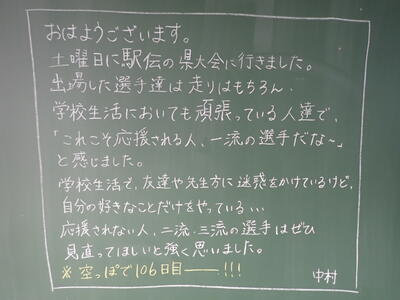 おはようございます。
土曜日に駅伝の県大会に行きました。
出場した選手達は走りはもちろん、
学校生活においても頑張っている人達で、
「これこそ応援される人、一流の選手だな〜」
と感じました。
学校生活で、友達や先生方に迷惑をかけているけど、
自分の好きなことだけをやっている…
応援されない人、二流・三流の選手はぜひ
見直ってほしいと強く思いました。
※空っぽで106日目――!!!
中村